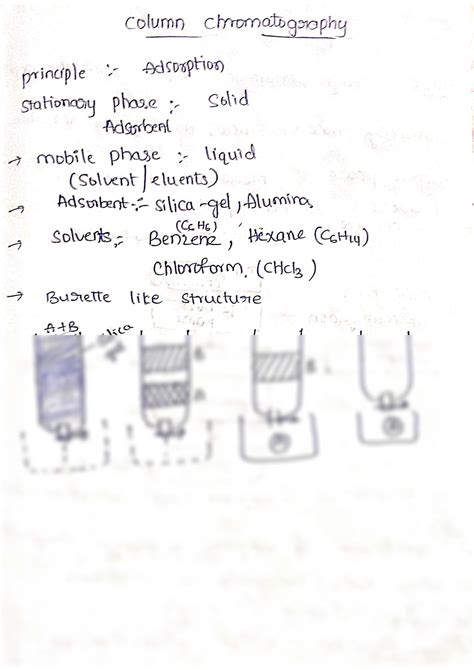 Column Chromatography
principle :- Adsorption
Stationary phase :- Solid
Adsorbent
→ mobile phase :- liquid
(Solvent / eluents)
→ Adsorbent :- Silica-gel, Alumina,
→ Solvents :- Benzene (C6H6), Hexane (C6H14)
Chloroform. (CHCl3)
→ Burette like structure
A+B